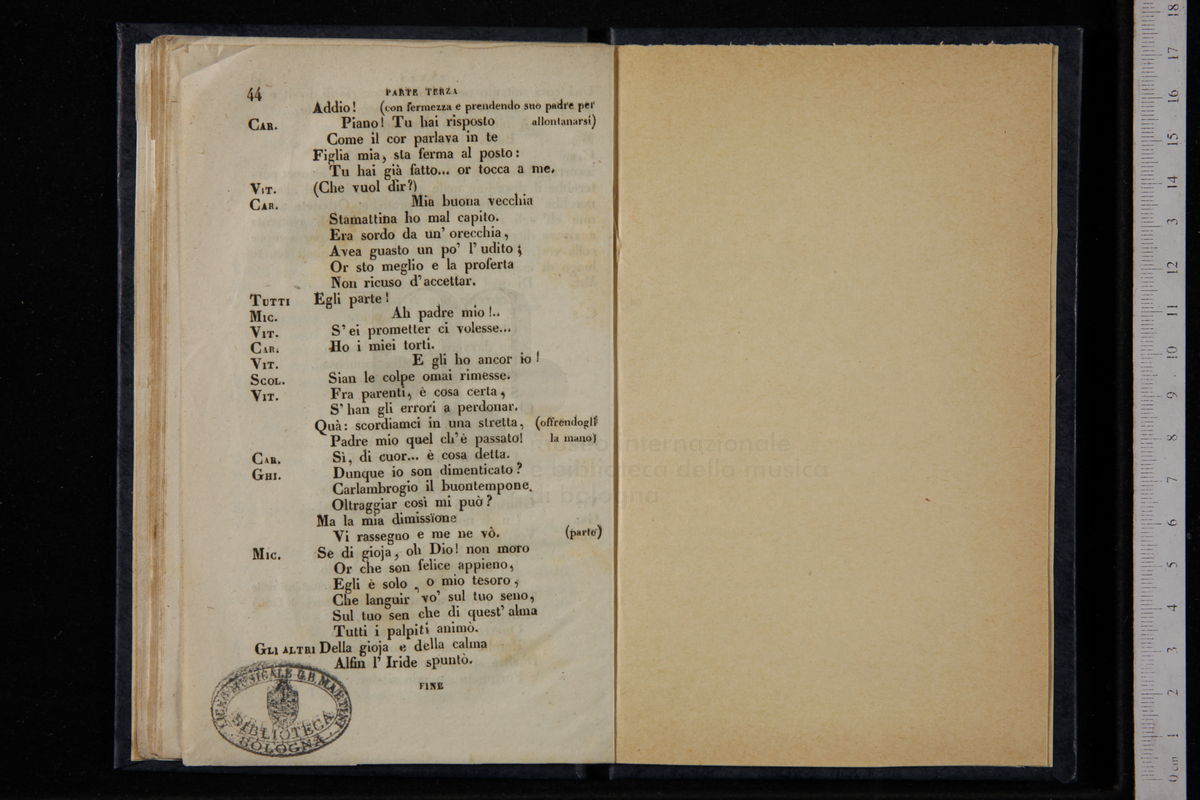 44
PARTE TERZA
Addio! (con fermezza e prendendo suo padre per
CAR. Piano! Tu hai risposto allontanarsi)
Come il cor parlava in te
Figlia mia, sta ferma al posto:
Tu hai già fatto... or tocca a me.
VIT. (Che vuol dir?)
CAR. Mia buona vecchia
Stamattina ho mal capito.
Era sordo da un' orecchia,
Avea guasto un po' l' udito;
Or sto meglio e la proferta
Non ricuso d' accettar.
TUTTI Egli parte!
MIC. Ah padre mio!..
VIT. S' ei prometter ci volesse...
CAR. Ho i miei torti.
VIT. E gli ho ancor io!
SCOL. Sian le colpe omai rimesse.
VIT. Fra parenti, è cosa certa,
S' han gli errori a perdonar.
Quà: scordiamci in una stretta, (offrendogli
Padre mio quel ch'è passato! la mano)
CAR. Sì, di cuor... è cosa detta.
GHI. Dunque io son dimenticato?
Carlambrogio il buontempone,
Oltraggiar così mi può?
Ma la mia dimissïone
Vi rassegno e me ne vò. (parte)
MIC. Se di gioja, oh Dio! non moro
Or che son felice appieno,
Egli è solo, o mio tesoro,
Che languir vo' sul tuo seno,
Sul tuo sen che di quest' alma
Tutti i palpiti animò.
GLI ALTRI Della gioja e della calma
Alfin l' Iride spuntò.
FINE
LICEO MUSICALE G.B. MARTINI
BIBLIOTECA
BOLOGNA
museo internazionale
e biblioteca della musica
di bologna
0 cm 1 2 3 4 5 6 7 8 9 10 11 12 13 14 15 16 17 18